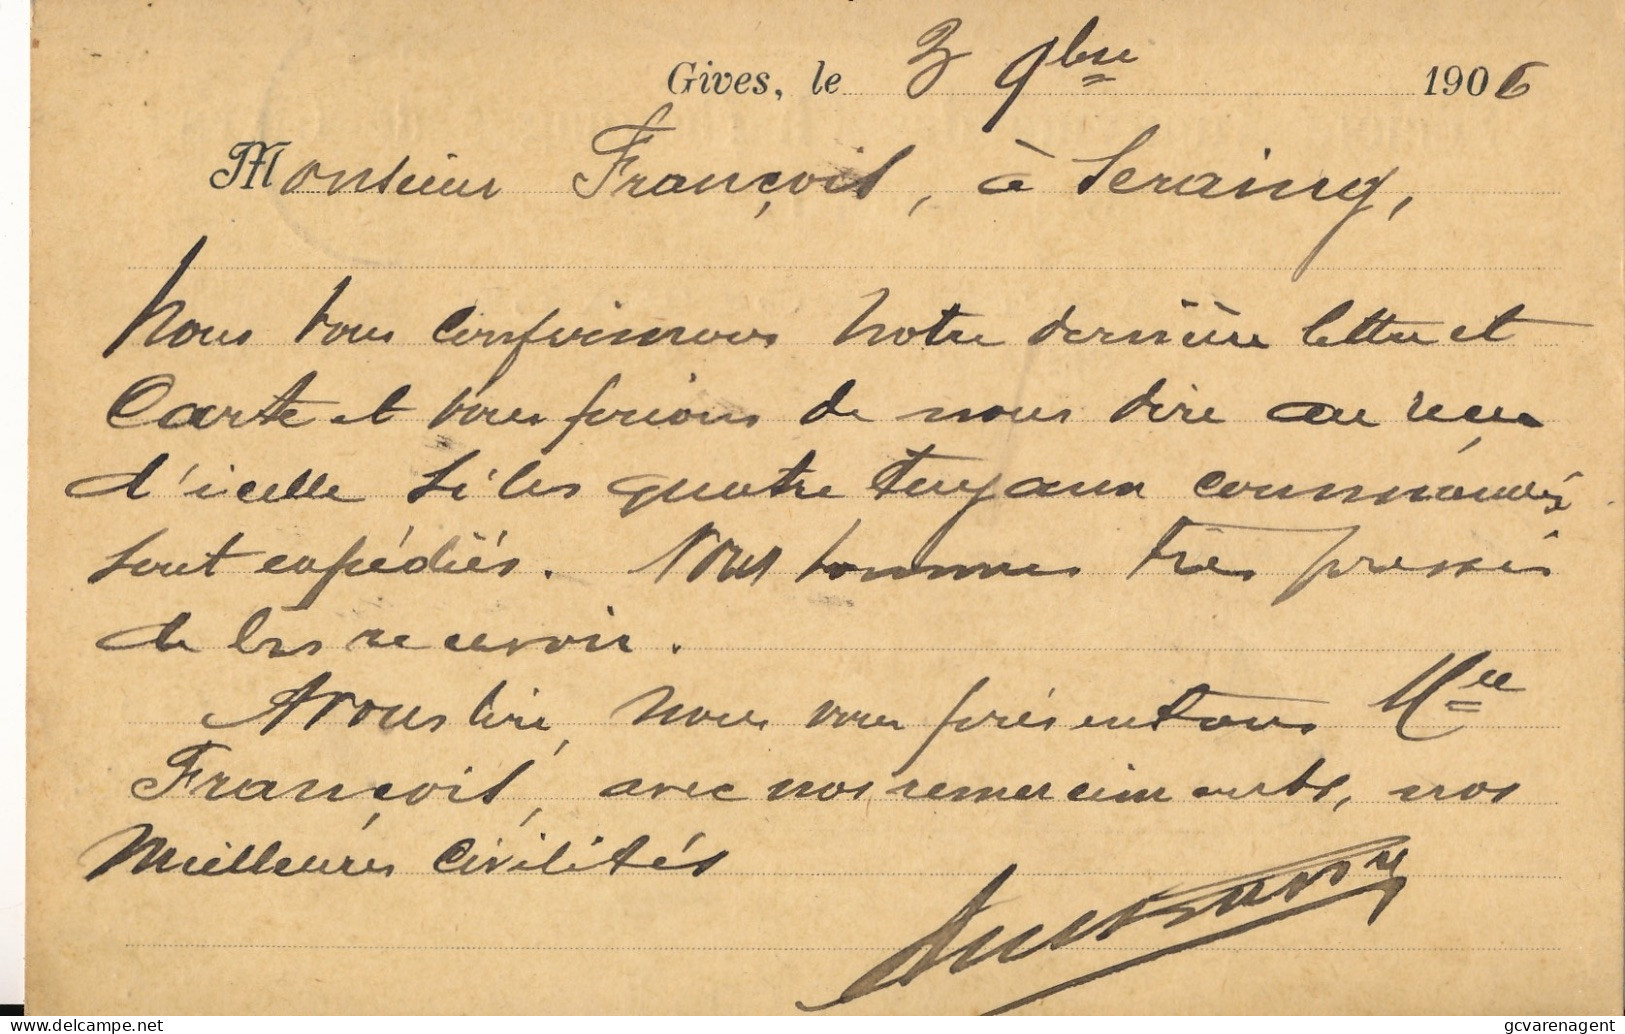 Gives, le 3 9bre 1906
Monsieur François, à Seraing,
Nous vous confirmons notre dernière lettre et
Carte et vous prions de nous dire au reçu
d'icelle si les quatre tuyaux commandés
sont expédiés. Nous sommes très pressés
de les recevoir.
A vous lire, nous vous présentons Mr
François, avec nos remerciments, nos
meilleures civilités
delcampe.net
gcvarenagent